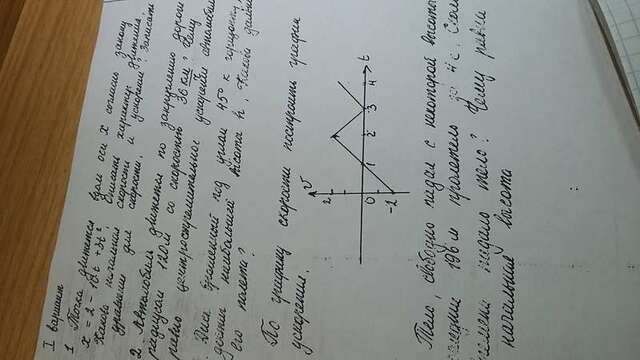 I вариант
1. Точка движется вдоль оси X согласно закону
x = 2 - 10t + 3t². Описать характер движения.
Какова начальная скорость и ускорение? Записать
уравнение для скорости.
2. Автомобиль движется по закруглению дороги
радиусом 120 м со скоростью 36 км. Чему
равно центростремительное ускорение автомобиля
Диск, брошенный под углом 45° к горизонту,
достиг наибольшей высоты h. Какова дально
его полета?
По графику скорости построить график
ускорения.
v
2
0 1 2 3 4 t
-2
Тело, свободно падая с некоторой высоты
последние 196 м пролетело за 4 с. Скол
времени падало тело? Чему равна
начальная высота